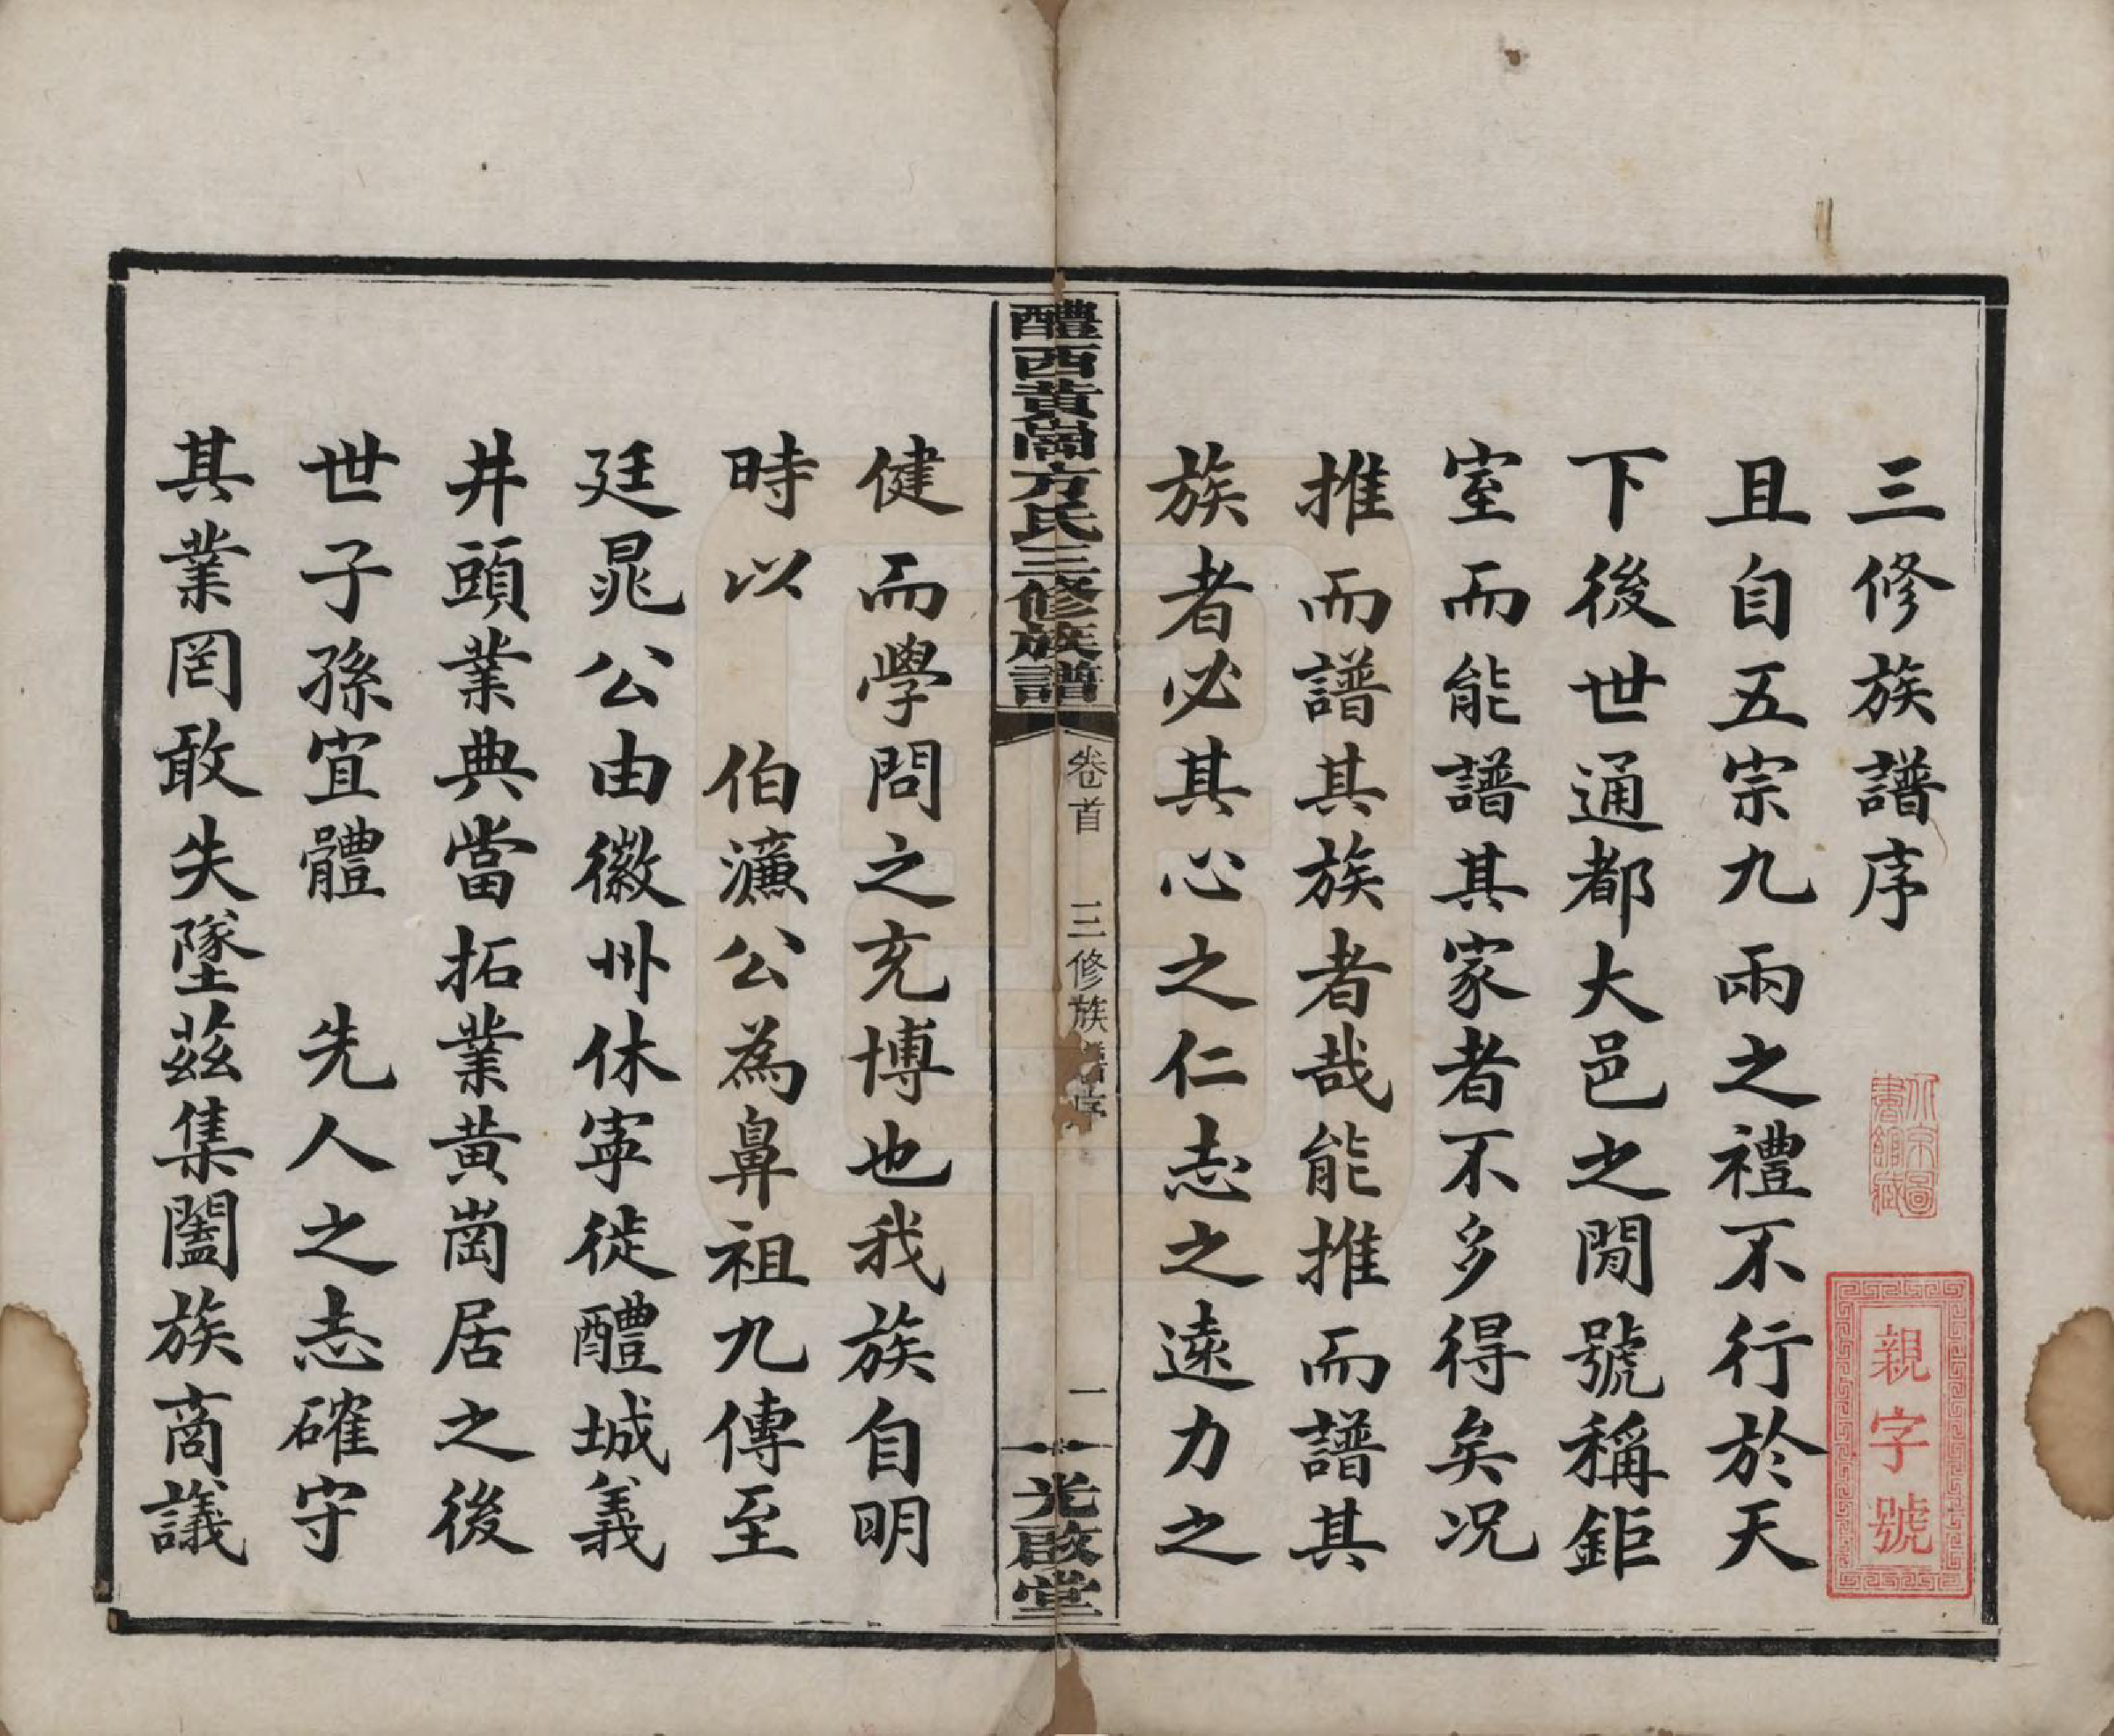 三修族譜序
且自五宗九兩之禮不行於天
下後世通都大邑之閒號稱鉅
室而能譜其家者不多得矣況
推而譜其族者哉能推而譜其
族者必其心之仁志之遠力之
北京圖書館藏
親字號
醴西黄崗方氏三修族譜
卷首
三修族譜序
一
光啟堂
健而學問之充博也我族自明
時以 伯濂公為鼻祖九傳至
廷晁公由徽州休寧徙醴城義
井頭業典當拓業黄崗居之後
世子孫宜體 先人之志確守
其業罔敢失墜茲集闔族商議